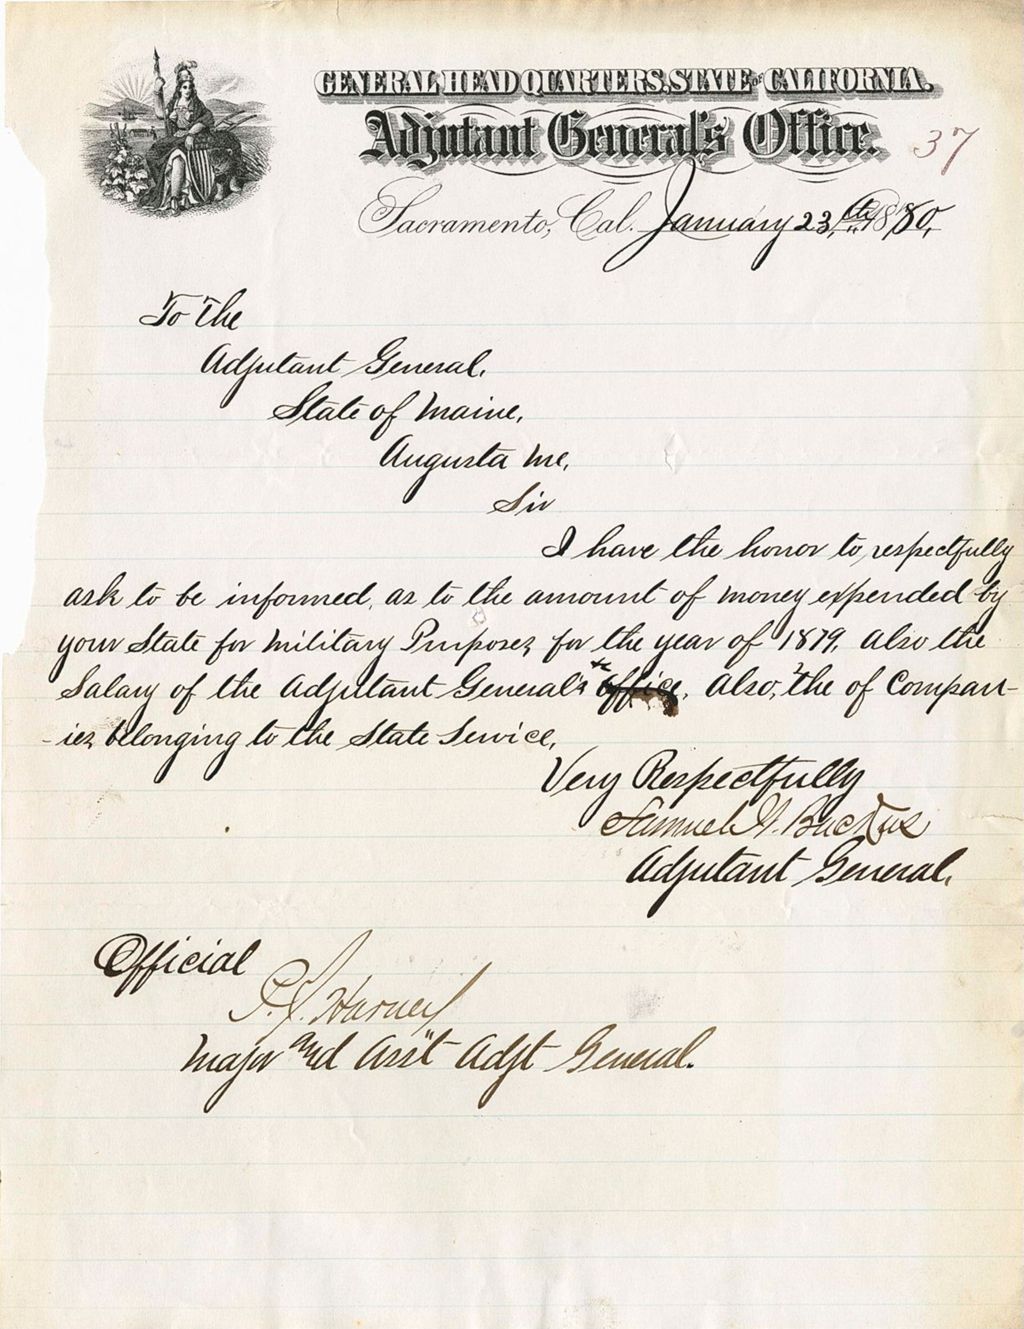 GENERAL HEAD QUARTERS, STATE OF CALIFORNIA.
Adjutant General's Office.
37
Sacramento, Cal. January 23th, 1880,
To the
Adjutant General,
State of Maine,
Augusta Me,
Sir
I have the honor to respectfully
ask to be informed, as to the amount of money expended by
your State for Military Purposes for the year of 1879, also the
Salary of the Adjutant General's office, Also, the of Compan-
-ies belonging to the State Service,
Very Respectfully
Samuel W. Backus
Adjutant General,
Official
P. J. Harney
Major and Ass't Adjt General.